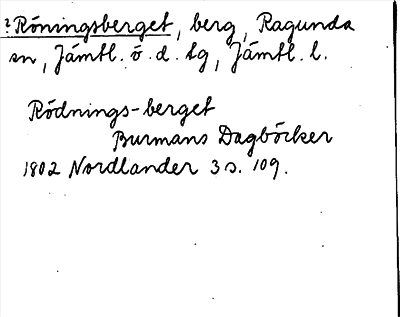 ? Röningsberget, berg, Ragunda
sn, Jämtl. ö. d. tg, Jämtl. l.
Rödnings-berget
Burmans Dagböcker
1802 Nordlander 3 s. 109.